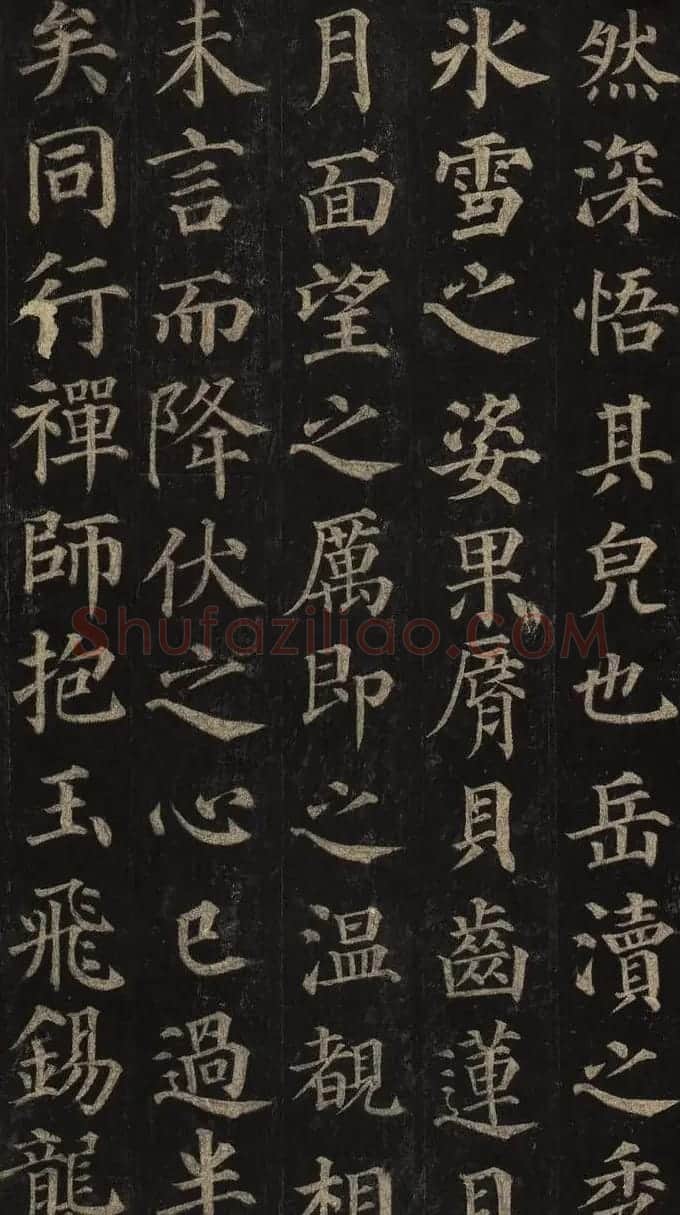 然深悟其皃也岳瀆之秀
氷雪之姿果脣貝齒蓮目
月面望之厲即之温覩相
未言而降伏之心已過半
矣同行禪師抱玉飛錫龍
Shufaziliao.COM